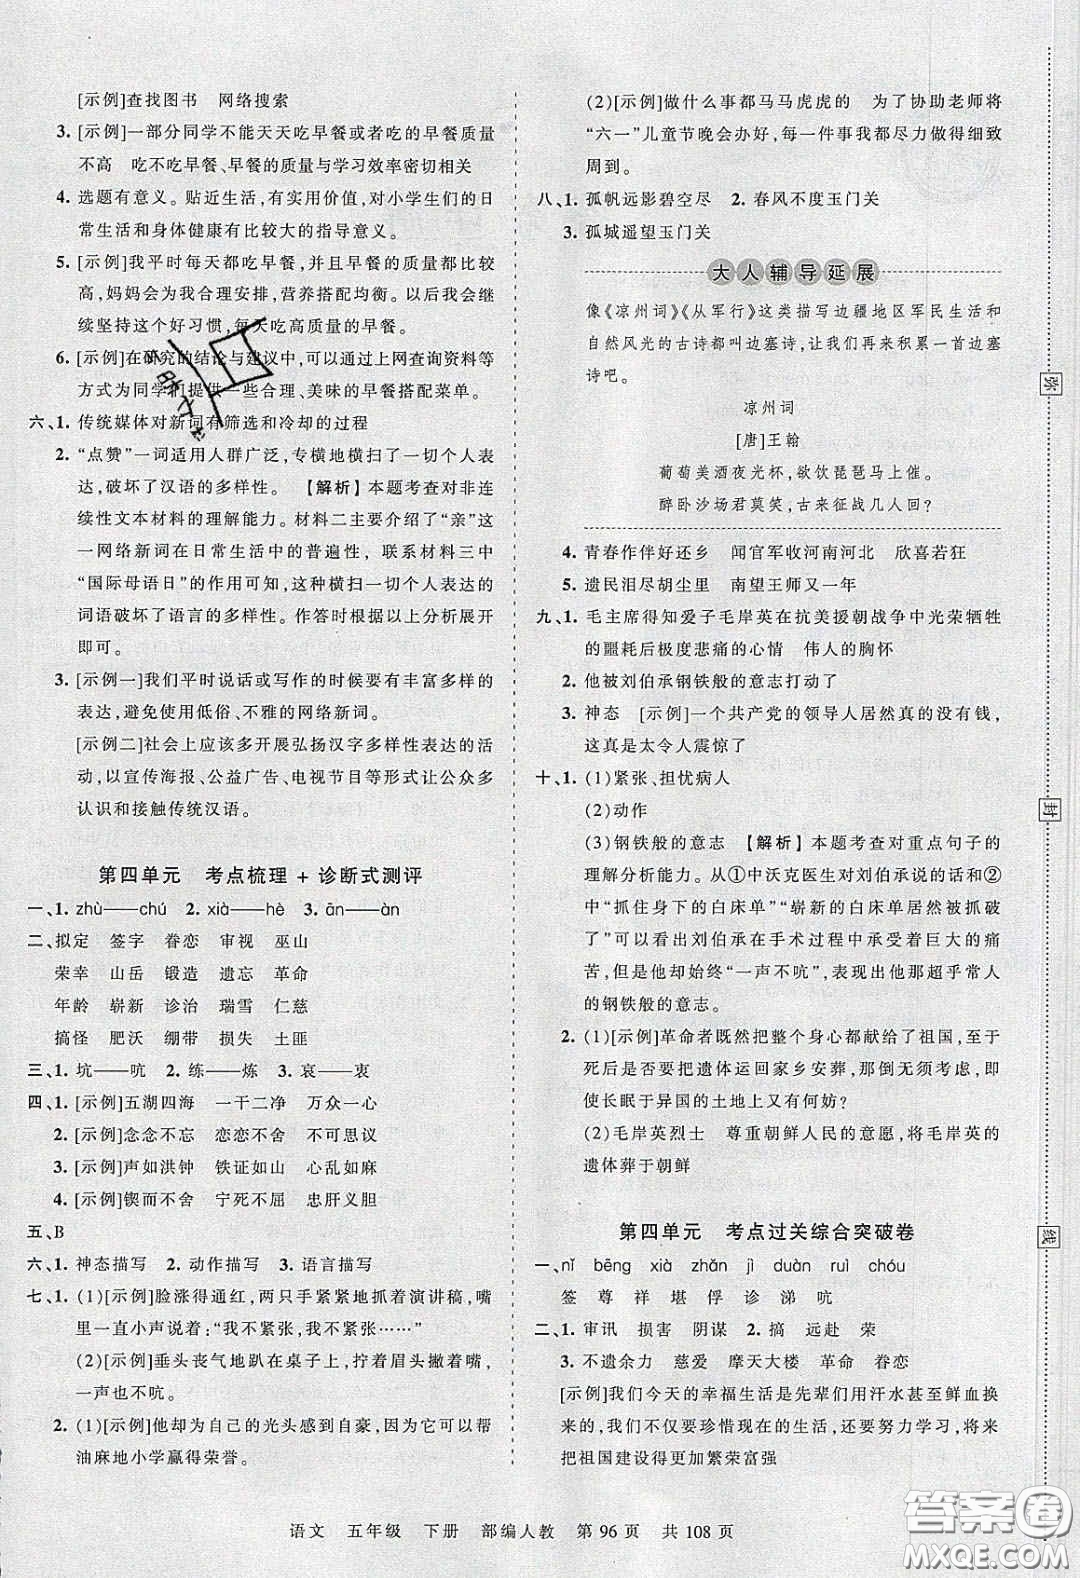 [示例]查找图书　网络搜索
3. [示例]一部分同学不能天天吃早餐或者吃的早餐质量
不高　吃不吃早餐、早餐的质量与学习效率密切相关
4. 选题有意义。贴近生活,有实用价值,对小学生们的日
常生活和身体健康有比较大的指导意义。
5. [示例]我平时每天都吃早餐,并且早餐的质量也比较
高,妈妈会为我合理安排,营养搭配均衡。以后我会继
续坚持这个好习惯,每天吃高质量的早餐。
6. [示例]在研究的结论与建议中,可以通过上网查询资料等
方式为同学们提供一些合理、美味的早餐搭配菜单。
六、1. 传统媒体对新词有筛选和冷却的过程
2. “点赞”一词适用人群广泛,专横地横扫一切个人表
达,破坏了汉语的多样性。　【解析】本题考查对非连
续性文本材料的理解能力。材料二主要介绍了“亲”这
一网络新词在日常生活中的普遍性,联系材料三中
“国际母语日”的作用可知,这种横扫一切个人表达的
词语破坏了语言的多样性。作答时根据以上分析展开
即可。
3. [示例一]我们平时说话或写作的时候要有丰富多样的
表达,避免使用低俗、不雅的网络新词。
[示例二]社会上应该多开展弘扬汉字多样性表达的活
动,以宣传海报、公益广告、电视节目等形式让公众多
认识和接触传统汉语。
第四单元　考点梳理 + 诊断式测评
一、1. zhù——chú　2. xià——hè　3. ān——àn
二、拟定　签字　眷恋　审视　巫山
荣幸　山岳　锻造　遗忘　革命
年龄　崭新　诊治　瑞雪　仁慈
搞怪　肥沃　绷带　损失　土匪
三、1. 坑——吭　2. 练——炼　3. 哀——衷
四、1. [示例]五湖四海　一干二净　万众一心
2. [示例]念念不忘　恋恋不舍　不可思议
3. [示例]声如洪钟　铁证如山　心乱如麻
4. [示例]锲而不舍　宁死不屈　忠肝义胆
五、B
六、1. 神态描写　2. 动作描写　3. 语言描写
七、1. (1)[示例]脸涨得通红,两只手紧紧地抓着演讲稿,嘴
里一直小声说着:“我不紧张,我不紧张……”
(2)[示例]垂头丧气地趴在桌子上,皱着眉头撇着嘴,
一声也不吭。
2. (1)[示例]他却为自己的光头感到自豪,因为它可以帮
油麻地小学赢得荣誉。
(2)[示例]做什么事都马马虎虎的　为了协助老师将
“六一”儿童节晚会办好,每一件事我都尽力做得细致
周到。
八、1. 孤帆远影碧空尽　2. 春风不度玉门关
3. 孤城遥望玉门关
大人辅导延展
像《凉州词》《从军行》这类描写边疆地区军民生活和
自然风光的古诗都叫边塞诗,让我们再来积累一首边塞
诗吧。
凉州词
[唐]王翰
葡萄美酒夜光杯,欲饮琵琶马上催。
醉卧沙场君莫笑,古来征战几人回?
4. 青春作伴好还乡　闻官军收河南河北　欣喜若狂
5. 遗民泪尽胡尘里　南望王师又一年
九、1. 毛主席得知爱子毛岸英在抗美援朝战争中光荣牺牲
的噩耗后极度悲痛的心情　伟人的胸怀
2. 他被刘伯承钢铁般的意志打动了
3. 神态　[示例]一个共产党的领导人居然真的没有钱,
这真是太令人震惊了
十、1. (1)紧张、担忧病人
(2)动作
(3)钢铁般的意志　【解析】本题考查对重点句子的
理解分析能力。从①中沃克医生对刘伯承说的话和②
中“抓住身下的白床单”“崭新的白床单居然被抓破
了”可以看出刘伯承在手术过程中承受着巨大的痛
苦,但是他却始终“一声不吭”,表现出他那超乎常人
的钢铁般的意志。
2. (1)[示例]革命者既然把整个身心都献给了祖国,至于
死后是否要把遗体运回家乡安葬,那倒无须多加考虑,
即使长眠于异国的土地上又有何妨?
(2)毛岸英烈士　尊重朝鲜人民的意愿,将毛岸英的
遗体葬于朝鲜
第四单元　考点过关综合突破卷
一、nǐ　bēng　xià　zhǎn　jì　duàn　ruì　chóu
签　尊　祥　堪　俘　诊　涕　吭
二、1. 审讯　损害　阴谋　2. 搞　远赴　荣
3. 不遗余力　慈爱　摩天大楼　革命　眷恋
[示例]我们今天的幸福生活是先辈们用汗水甚至鲜血换来
的,我们不仅要珍惜现在的生活,还要努力学习,将来
把祖国建设得更加繁荣富强
弥
封
线
语文　五年级　下册　部编人教　第 96 页　共 108 页
答案圈
MXQE.COM